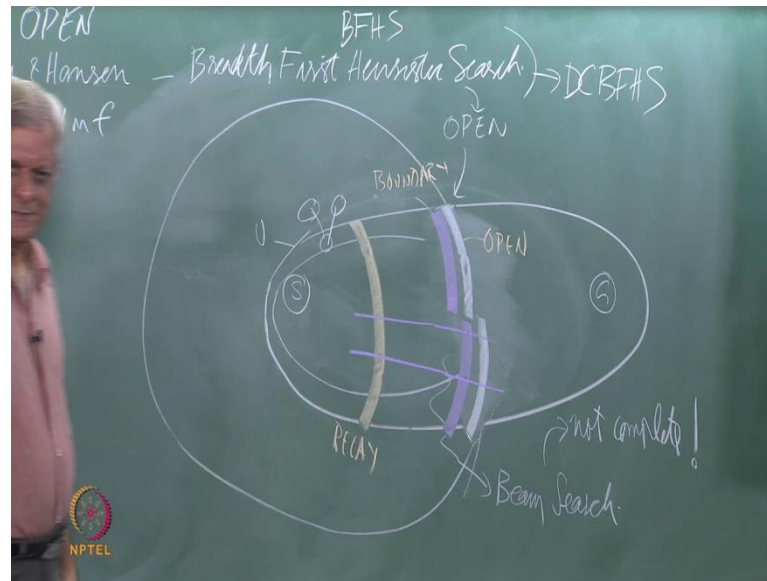 OPEN
BFHS
& Hansen – Breadth First Heuristic Search → DCBFHS
mf
OPEN
BOUNDARY
Q P
U
OPEN
S
G
RELAY
not complete!
Beam Search
NPTEL